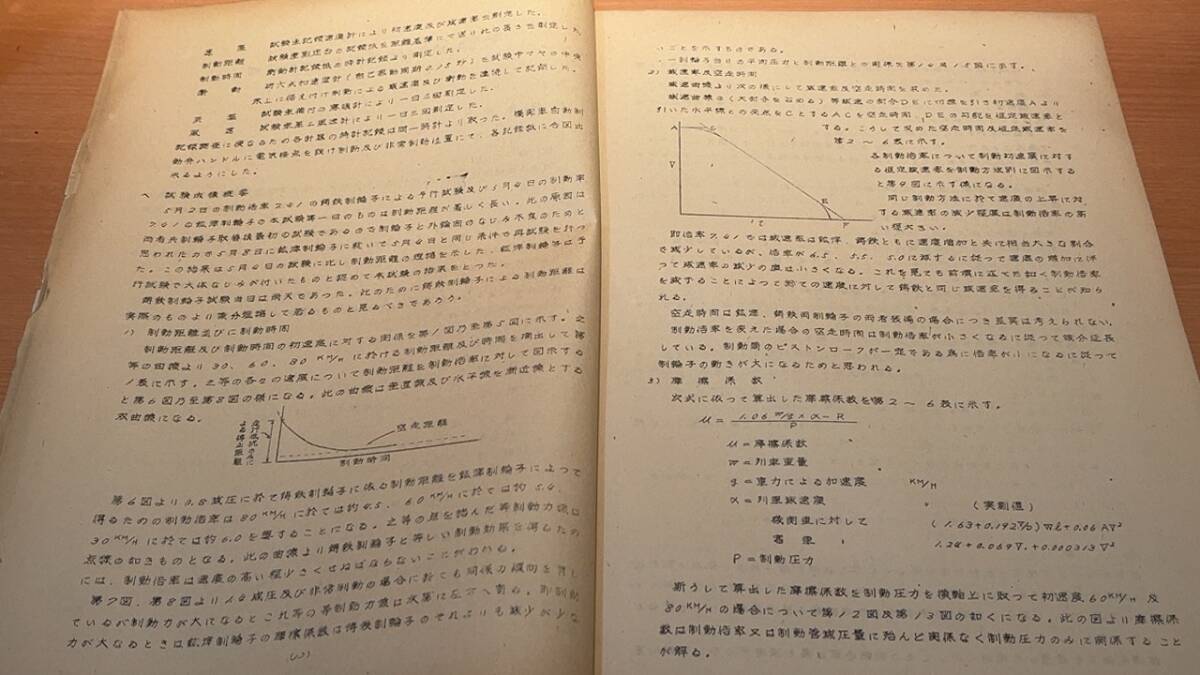 速度 試験車記録速度計により初速度及び減速度を測定した。
制動距離 試験車別圧台の記録紙を距離基準にて送り比の長さを測定した
制動時間 衝動計記録紙の時計記録より測定した。
衝動
床上に据え付け制動による減速度及び衝動を連続して記録した。
天温 試験車備付の寒暖計により一日三回測定した。
風速 試験車第二風速計により一日三回測定した。
記録調査に便なるため各計器の時計記録は同一時計より取った。機関車自動制
動弁ハンドルに電気接点を設け制動及び非常制動位置にて、各記録紙に
れるようにした。
ヘ 試験成績概要
5月2日の制動倍率7.41の鋳鉄制輪子による予行試験及び5月4日の制動率
7.41の鉱滓制輪子の本試験第一日のものは制動距離が著しく長い。此の原因は
両者共制輪子取替後最初の試験であるので制輪子と外輪面のなじみ不良のためと
思われたので5月8日に鉱滓制輪子に就いて5月4日と同じ条件で再試験を行っ
た。この結果は5月4日の試験に比し制動距離の短縮を示した。鉱滓制輪子は予
行試験で大体なじみが付いたものと認めて本試験の結果をとった。
鋳鉄制輪子試験当日は雨天であった。此のために鋳鉄制輪子による制動距離は
実際のものより幾分延揚して居るものと見るべきであろう。
1) 制動距離並びに制動時間
制動距離及び制動時間の初速度に対する関係を第1図乃至第5図に示す。之
等の曲線より30、60、80 KM/Hに於ける制動距離及び時間を摘出して第
1表に示す。之等の各々の速度について制動距離を制動倍率に対して図示する
と第6図乃至第8図の様になる。此の曲線は垂直線及び水平線を漸近線とする
双曲線になる。
空走距離
制動時間
第6図より0.8減圧に於て鋳鉄制輪子に依る制動距離を鉱滓制輪子によって
得るための制動倍率は80 KM/Hに於ては約4.5、60 KM/Hに於ては約5.4、
30 KM/Hに於ては約6.0を要することになる。之等の点を結んだ等制動力線は
点線の如きものとなる。此の曲線より鋳鉄制輪子と等しい制動効果を得るため
には、制動倍率は速度の高い程少さくせねばならないことがわかる。
第7図、第8図より1.4減圧及び非常制動の場合に於ても同様な傾向を有し
ているが制動力が大になるとこれ等の等制動力線は次第に左方へ寄る。即制動
力が大なるときは鉱滓制輪子の摩擦係数は鋳鉄制輪子のそれよりも減少が少な
いことを示すものである。
一制輪子当りの平均圧力と制動距離との関係を第14図/15図に示す。
2) 減速率及空走時間
減速曲線より次の様にして減速度及空走時間を求めた。
減速曲線の(大部分を占める)等減速の部分DEに切線を引き初速度Aより
引いた水平線との交点をCとするACを空走時間、DEの勾配を恒定減速率と
する。こうして求めた空走時間及恒定減速率を
第2~6表に示す。
A
C
V
E
t
F
各制動倍率について制動初速度に対す
る恒定減速率を制動方式別に図示する
と第9図に示す様になる。
同じ制動方法に於て速度の上昇に対
する減速率の減少程度は制動倍率の高
い程大きい。
即倍率7.41では減速率は鉱滓、鋳鉄ともに速度増加と共に相当大きな割合
で減少しているが、倍率が6.5、5.5、5.0に減ずるに従って速度の増加に伴
って減速率の減少の度は小さくなる。これを見ても前項に述べた如く制動倍率
を減ずることによって総ての速度に対して鋳鉄と同じ減速度を得ることが知ら
れる。
空走時間は鉱滓、鋳鉄両制輪子の両者装備の場合につき差異は考えられない。
制動倍率を変えた場合の空走時間は制動倍率が小さくなるに従って幾分延長
している。制動筒のピストンストロークが一定である為に倍率が小になるに従って
制輪子の動きが大になるためと思われる。
3) 摩擦係数
次式に依って算出した摩擦係数を第2~6表に示す。
μ = 1.06 w/g × α − R / P
μ = 摩擦係数
w = 列車重量
g = 重力による加速度 KM/H
α = 列車減速度 (実測値)
機関車に対して (1.63+0.192 V/0) W l + 0.06 A V²
客車 〃 1.24 + 0.069 V. + 0.000313 V²
P = 制動圧力
斯うして算出した摩擦係数を制動圧力を横軸上に取って初速度60 KM/H 及
80 KM/Hの場合について第12図及第13図の如くになる。此の図より摩擦係
数は制動倍率又は制動管減圧量に殆んど関係なく制動圧力のみに関係すること
が解る。